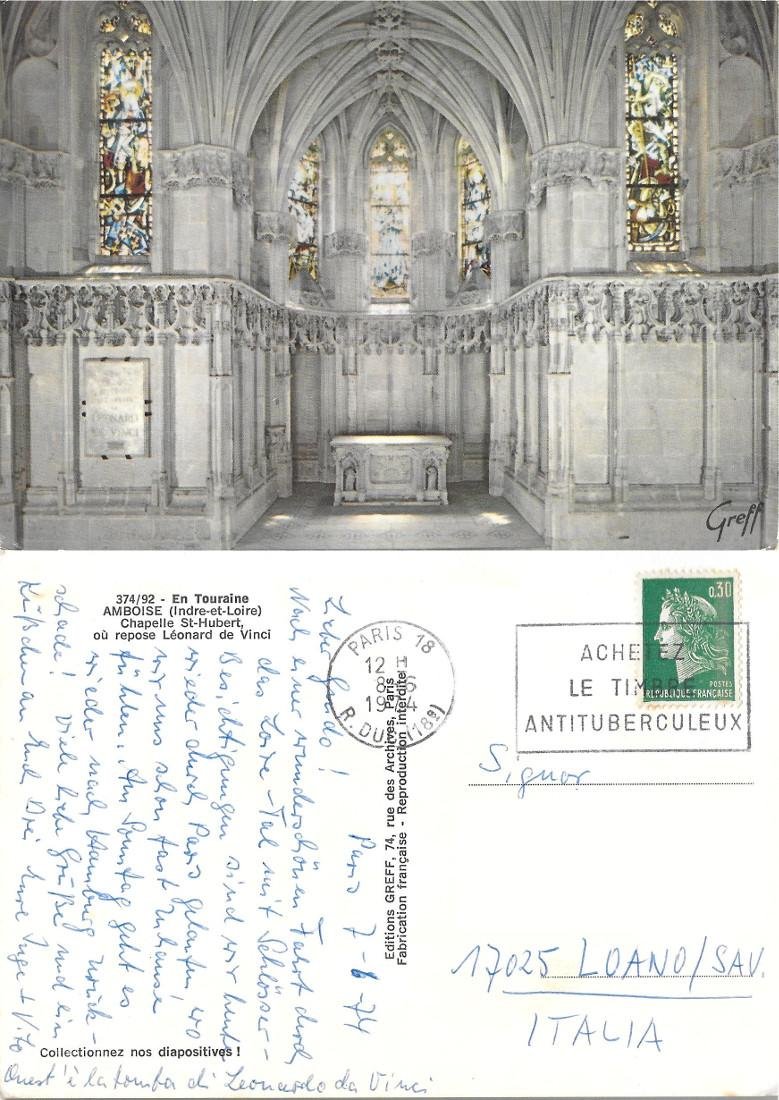 LEONARD
DE VINCI
Greff
374/92 - En Touraine
AMBOISE (Indre-et-Loire)
Chapelle St-Hubert,
où repose Léonard de Vinci
Paris 7-6-74
Liebe Guido!
Nach einer wunderschönen Fahrt durch
das Loire-Tal mit Schlösser-
Besichtigungen sind wir heute
wieder durch Paris gelaufen, wo
wir uns schon fast zuhause
fühlen. Am Sonntag geht es
wieder nach Hamburg zurück -
schade! Viele liebe Grüße und ein
Küßchen an Euch Drei Eure Inge + Vito
Collectionnez nos diapositives !
Quest'è la tomba di Leonardo da Vinci
Editions GREFF, 74, rue des Archives, Paris
Fabrication française - Reproduction interdite
PARIS 18
12 H
8-6
1974
R. DUC (18e)
ACHETEZ
LE TIMBRE
ANTITUBERCULEUX
0,30
POSTES
REPUBLIQUE FRANÇAISE
Signor
17025 LOANO/SAV.
ITALIA